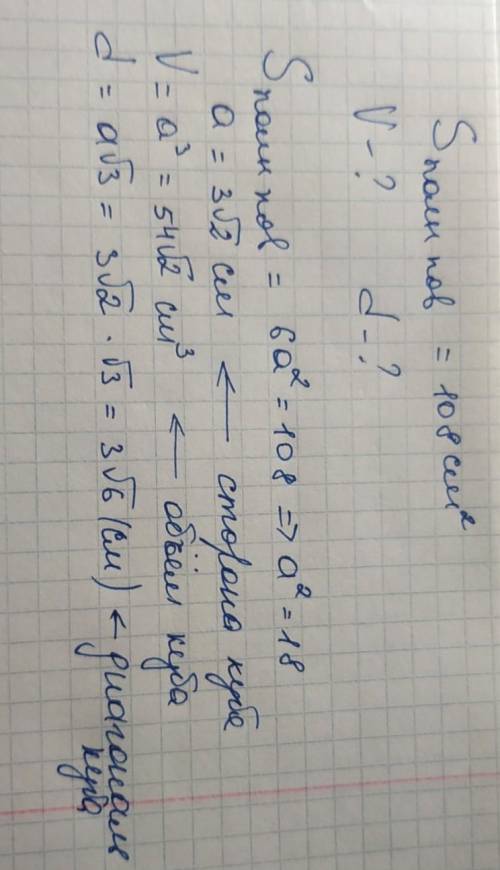 S полн пов = 108 см²
V - ? d - ?
S полн пов = 6a² = 108 => a² = 18
a = 3√2 см ← сторона куба
V = a³ = 54√2 см³ ← объём куба
d = a√3 = 3√2 · √3 = 3√6 (см) ← диагональ
куба